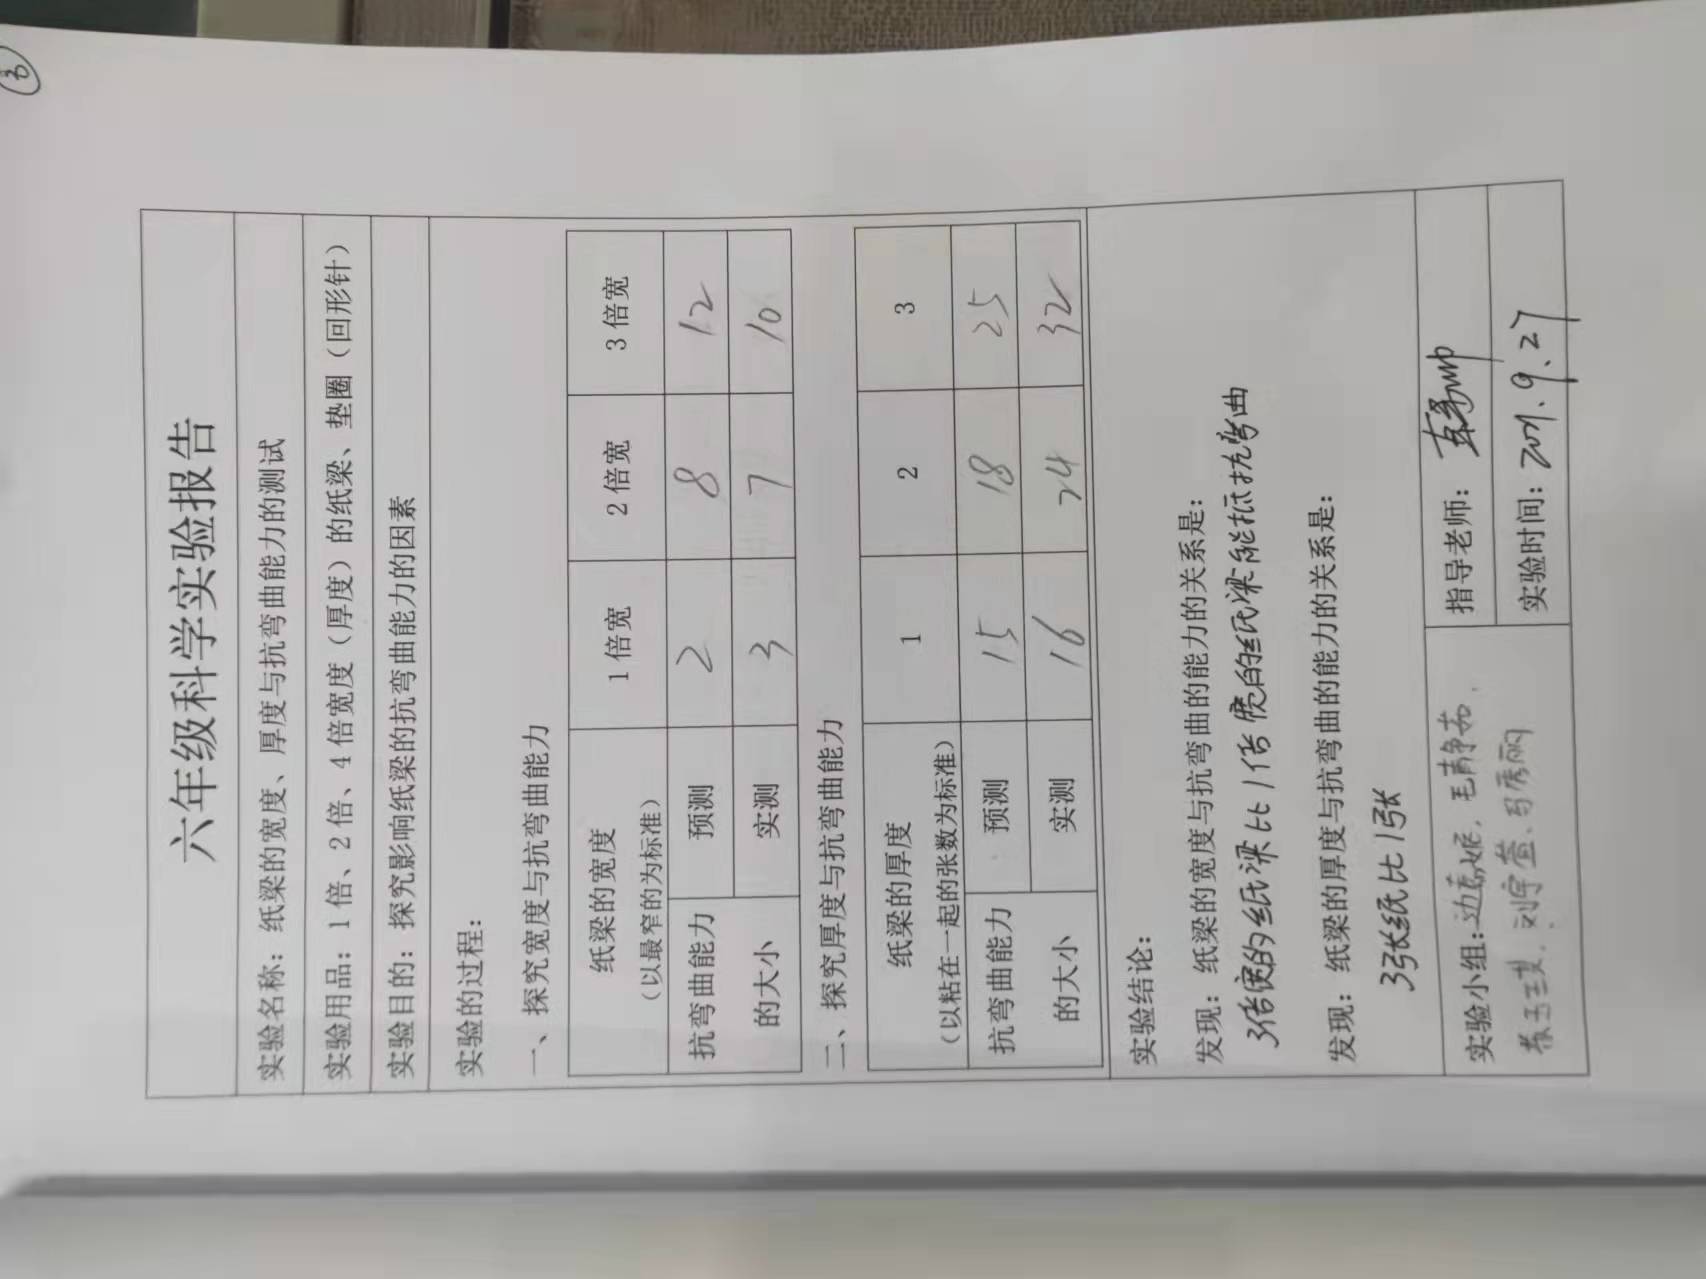 ③
六年级科学实验报告
实验名称：纸梁的宽度、厚度与抗弯曲能力的测试
实验用品：1倍、2倍、4倍宽度（厚度）的纸梁、垫圈（回形针）
实验目的：探究影响纸梁的抗弯曲能力的因素
实验的过程：
一、探究宽度与抗弯曲能力
纸梁的宽度 1倍宽 2倍宽 3倍宽
（以最窄的为标准）
抗弯曲能力 预测 2 8 12
的大小 实测 3 7 10
二、探究厚度与抗弯曲能力
纸梁的厚度 1 2 3
（以粘在一起的张数为标准）
抗弯曲能力 预测 15 18 25
的大小 实测 16 24 32
实验结论：
发现：纸梁的宽度与抗弯曲的能力的关系是：
3倍宽的纸梁比1倍宽的纸梁能抵抗弯曲
发现：纸梁的厚度与抗弯曲的能力的关系是：
3张纸比1张
实验小组： 指导老师：
刘宇 马秀丽 实验时间：2021.9.27